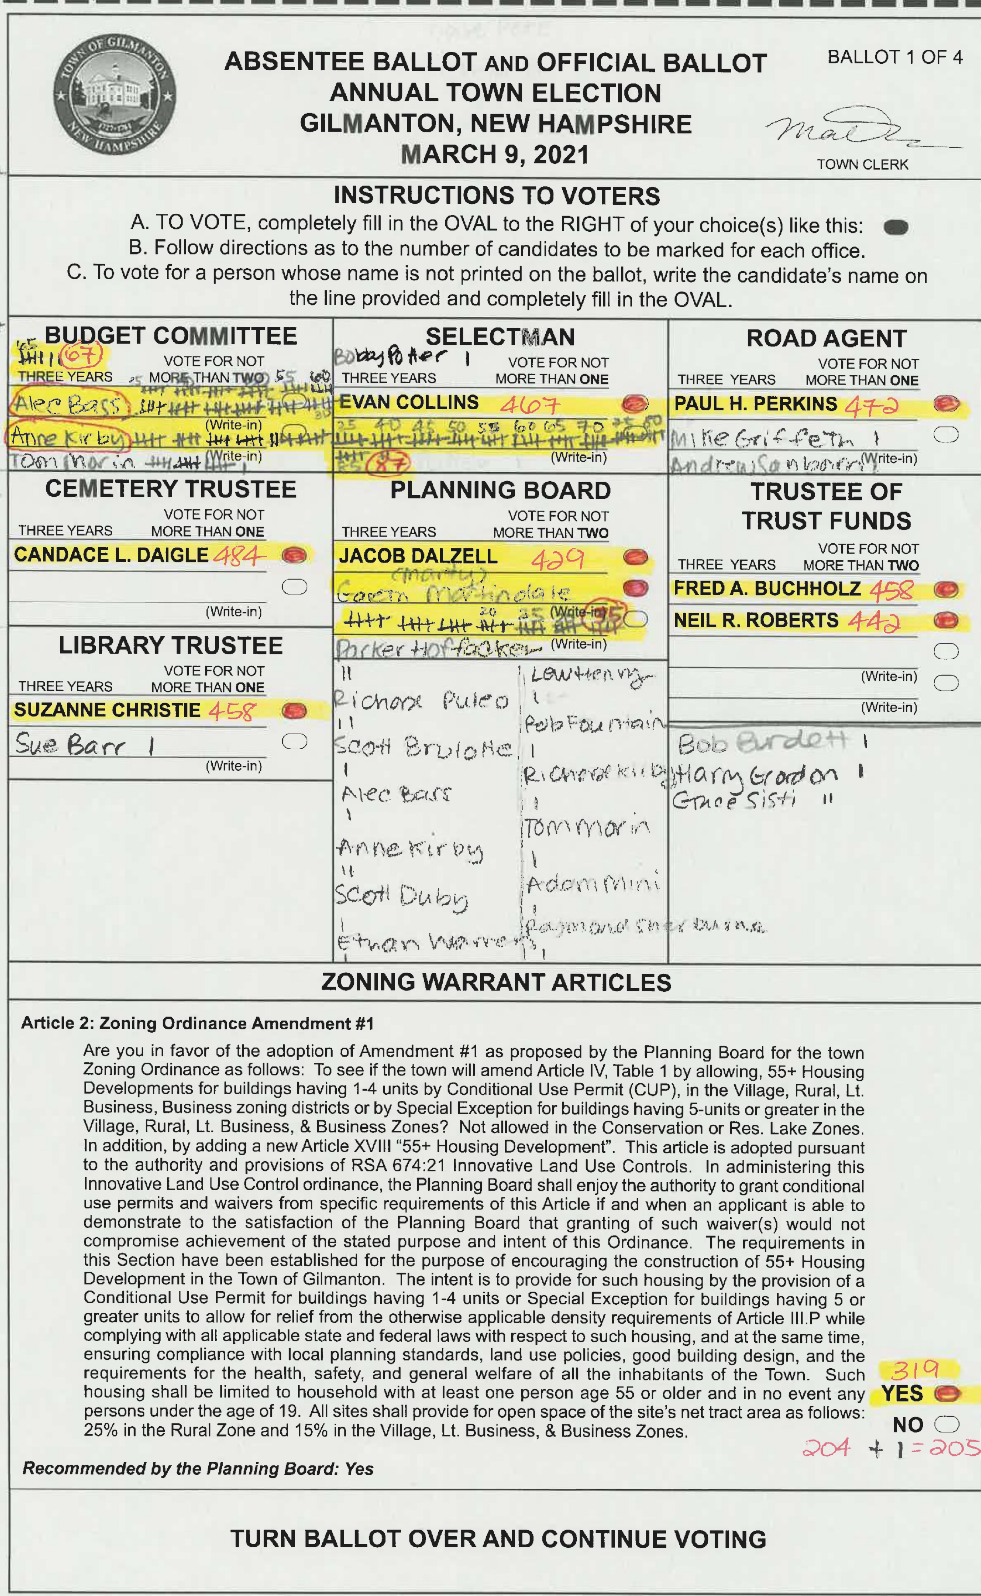 TOWN OF GILMANTON
NEW HAMPSHIRE
ABSENTEE BALLOT AND OFFICIAL BALLOT
ANNUAL TOWN ELECTION
GILMANTON, NEW HAMPSHIRE
MARCH 9, 2021
BALLOT 1 OF 4
TOWN CLERK
INSTRUCTIONS TO VOTERS
A. TO VOTE, completely fill in the OVAL to the RIGHT of your choice(s) like this:
B. Follow directions as to the number of candidates to be marked for each office.
C. To vote for a person whose name is not printed on the ballot, write the candidate's name on
the line provided and completely fill in the OVAL.
BUDGET COMMITTEE
67
VOTE FOR NOT
THREE YEARS MORE THAN TWO
Alec Bass
(Write-in)
Anne Kirby
(Write-in)
Tom Marin
CEMETERY TRUSTEE
VOTE FOR NOT
THREE YEARS MORE THAN ONE
CANDACE L. DAIGLE 484
(Write-in)
LIBRARY TRUSTEE
VOTE FOR NOT
THREE YEARS MORE THAN ONE
SUZANNE CHRISTIE 458
Sue Barr 1
(Write-in)
SELECTMAN
Bobby Potter 1
VOTE FOR NOT
THREE YEARS MORE THAN ONE
EVAN COLLINS 467
35 40 45 50 55 60 65 70 75 80
(Write-in)
85 87
PLANNING BOARD
VOTE FOR NOT
THREE YEARS MORE THAN TWO
JACOB DALZELL 429
(marty)
Garth Martindale
20 25 (Write-in)
Parker Hoffacker (Write-in)
Richard Puleo
Scott Brulotte
Alec Bass
Anne Kirby
Scott Duby
Ethan Warren
Lew Henry
Rob Fountain
Richard Kirby
Tom Marin
Adam Mini
Raymond Sherburne
ROAD AGENT
VOTE FOR NOT
THREE YEARS MORE THAN ONE
PAUL H. PERKINS 472
Mike Griffeth 1
Andrew Sanborn 1 (Write-in)
TRUSTEE OF
TRUST FUNDS
VOTE FOR NOT
THREE YEARS MORE THAN TWO
FRED A. BUCHHOLZ 458
NEIL R. ROBERTS 442
(Write-in)
(Write-in)
Bob Burdett 1
Harry Gordon 1
Grace Sisti 11
ZONING WARRANT ARTICLES
Article 2: Zoning Ordinance Amendment #1
Are you in favor of the adoption of Amendment #1 as proposed by the Planning Board for the town
Zoning Ordinance as follows: To see if the town will amend Article IV, Table 1 by allowing, 55+ Housing
Developments for buildings having 1-4 units by Conditional Use Permit (CUP), in the Village, Rural, Lt.
Business, Business zoning districts or by Special Exception for buildings having 5-units or greater in the
Village, Rural, Lt. Business, & Business Zones? Not allowed in the Conservation or Res. Lake Zones.
In addition, by adding a new Article XVIII "55+ Housing Development". This article is adopted pursuant
to the authority and provisions of RSA 674:21 Innovative Land Use Controls. In administering this
Innovative Land Use Control ordinance, the Planning Board shall enjoy the authority to grant conditional
use permits and waivers from specific requirements of this Article if and when an applicant is able to
demonstrate to the satisfaction of the Planning Board that granting of such waiver(s) would not
compromise achievement of the stated purpose and intent of this Ordinance. The requirements in
this Section have been established for the purpose of encouraging the construction of 55+ Housing
Development in the Town of Gilmanton. The intent is to provide for such housing by the provision of a
Conditional Use Permit for buildings having 1-4 units or Special Exception for buildings having 5 or
greater units to allow for relief from the otherwise applicable density requirements of Article III.P while
complying with all applicable state and federal laws with respect to such housing, and at the same time,
ensuring compliance with local planning standards, land use policies, good building design, and the
requirements for the health, safety, and general welfare of all the inhabitants of the Town. Such
housing shall be limited to household with at least one person age 55 or older and in no event any
persons under the age of 19. All sites shall provide for open space of the site's net tract area as follows:
25% in the Rural Zone and 15% in the Village, Lt. Business, & Business Zones.
319
YES
NO
204 + 1 = 205
Recommended by the Planning Board: Yes
TURN BALLOT OVER AND CONTINUE VOTING